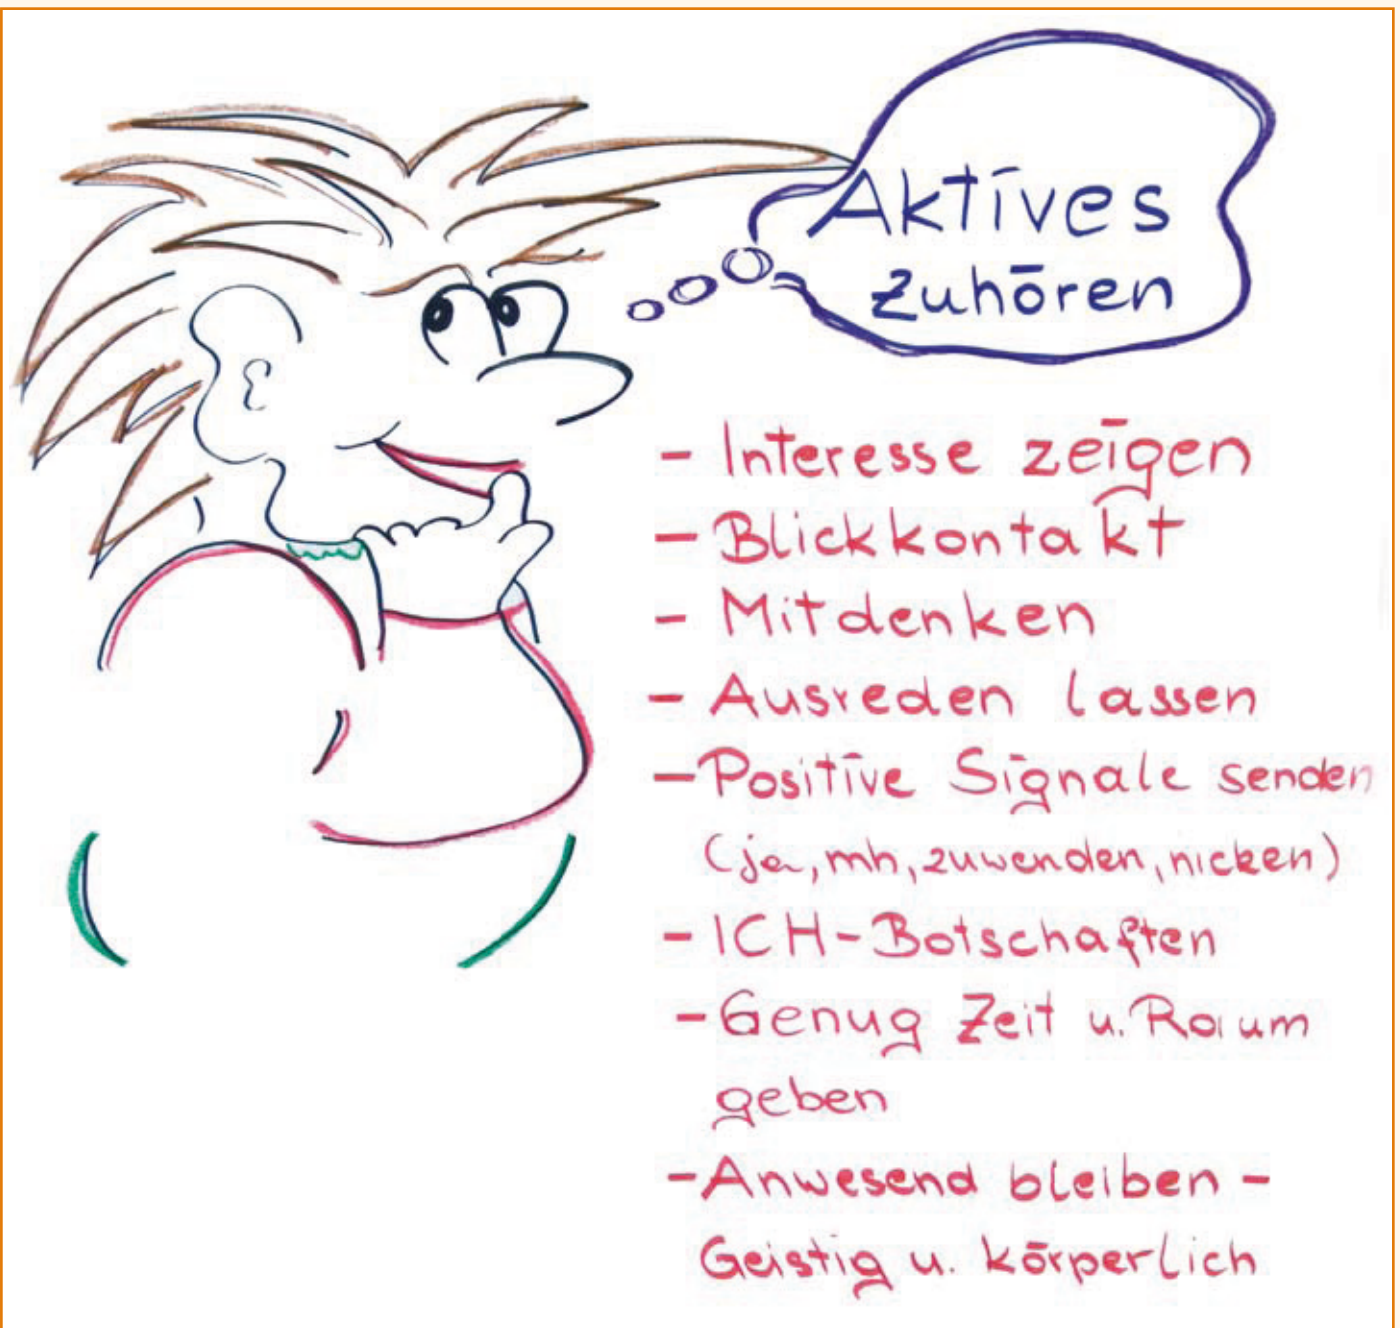 Aktives
Zuhören
- Interesse zeigen
- Blickkontakt
- Mitdenken
- Ausreden lassen
- Positive Signale senden
(ja, mh, zuwenden, nicken)
- ICH-Botschaften
- Genug Zeit u. Raum
geben
- Anwesend bleiben -
Geistig u. körperlich